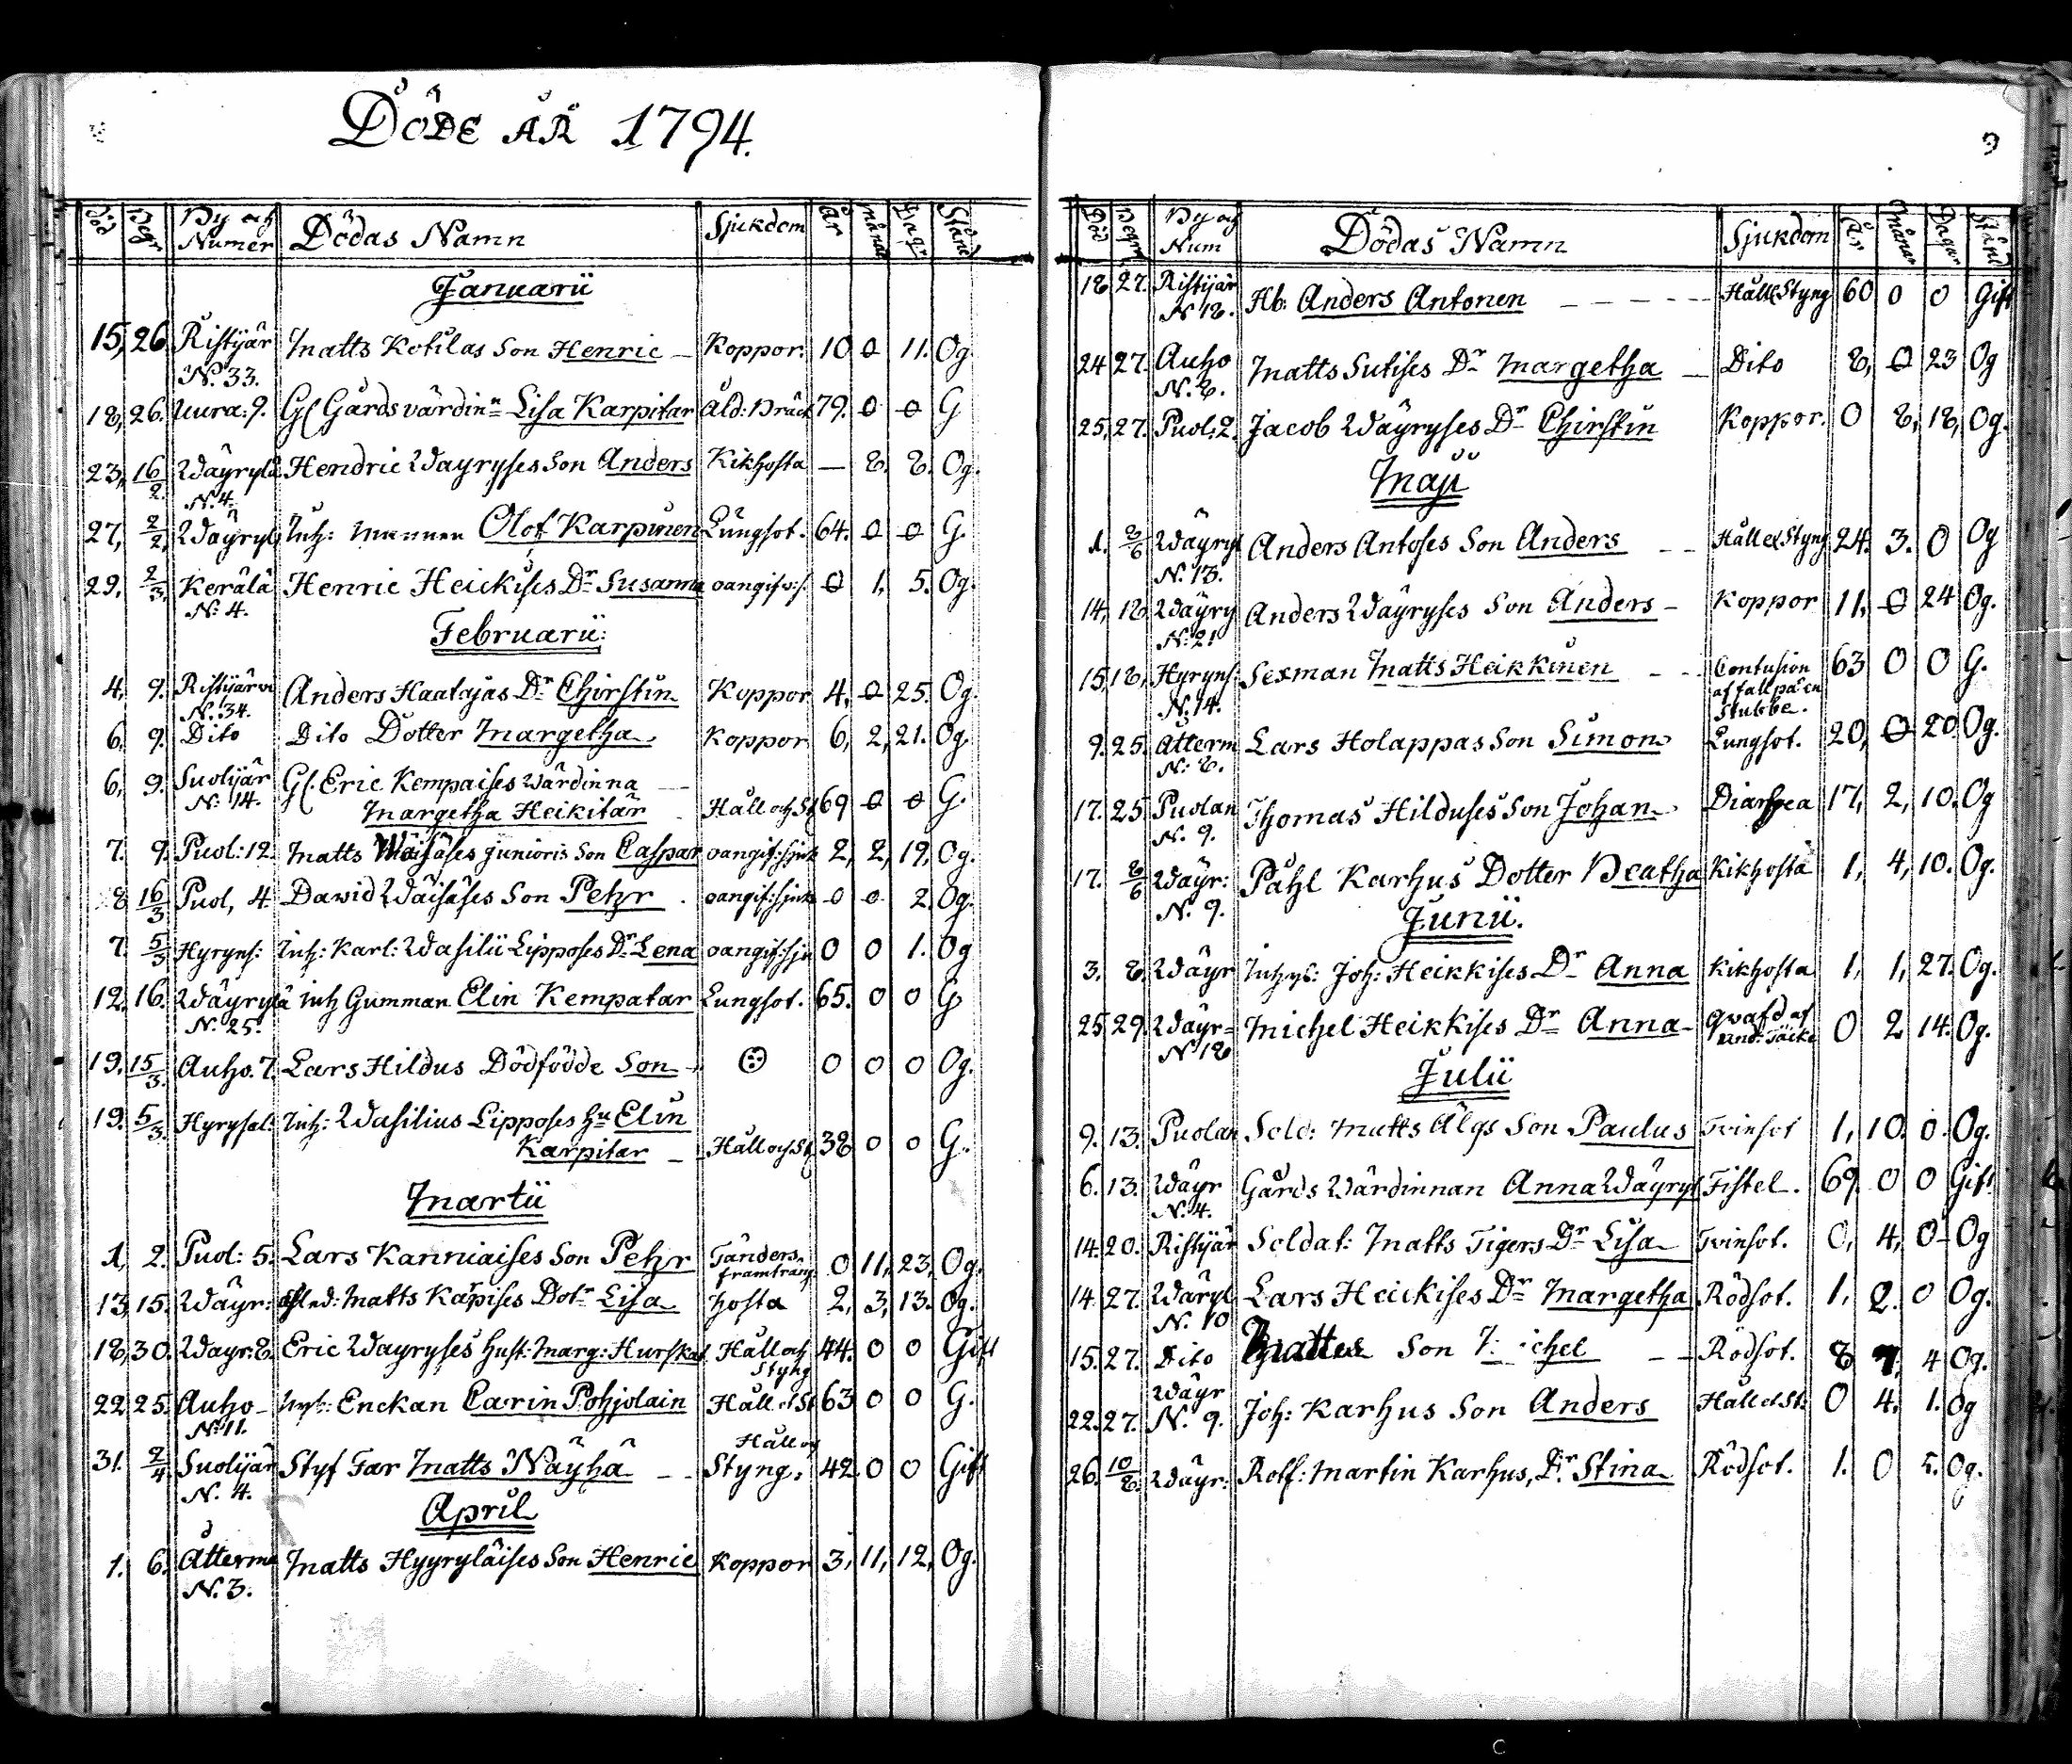 Döde År 1794.
Död Begr By och Numer Dödas Namn Sjukdom År Månad Dagr Stånd
Januarii
15, 26 Ristijär N. 33. Matts Kotilas Son Henric – Koppor. 10 0 11. Og
18, 26. Uura: 9. Gl Gårdsvärdin:n Lisa Karpitar Åld: Bräck 79. 0 0 G
23, 16/2. Wäyrylä N. 4. Hendric Wäyryses Son Anders Kikhosta — 8. 8. Og.
27, 2/2, Wäyryl: Inh: mannen Olof Karpinen Lungsot. 64. 0 0 G.
29, 2/3, Kerälä N: 4. Henric Heickises Dr Susanna oangifv:s. 0 1, 5. Og.
Februarii:
4, 9. Ristijärvi N. 34. Anders Haatajas Dr Chirstin Koppor 4, 0 25. Og.
6, 9. Dito Dito Dotter Margetha Koppor 6, 2, 21. Og.
6, 9. Suolijär N: 14. Gl. Eric Kempaises Wärdinna
Margetha Heikitär Håll och St 69 0 0 G.
7. 9. Puol: 12. Matts Wäisäses junioris Son Caspar oangif: sjuk 2, 2, 19, Og.
8 16/3 Puol, 4 David Wäisäses Son Pehr oangif: sjuk 0 0 2. Og.
7. 5/3 Hyryns: Inh: Karl: Wasilii Lipposes Dr Lena oangif: sju 0 0 1. Og
12. 16. Wäyrylä N. 25. Inh Gumman Elin Kempatar Lungsot. 65. 0 0 G
19. 15/3. Auho. 7. Lars Hildus Dödfödde Son 0 0 0 Og.
19. 5/3. Hyrysal: Inh: Wasilius Lipposes hu Elin
Karpitar – Håll och St 38 0 0 G.
Martii
1, 2. Puol: 5. Lars Kanniaises Son Pehr Tänders framträng: 0 11, 23, Og.
13, 15. Wäyr: Matts Kapises Dotr Lisa hosta 2, 3, 13. Og.
18, 30. Wäyr: 8. Eric Wäyryses hust: Marg: Hurskat Håll och Styng 44. 0 0 Gift
22 25. Auho N: 11. Enckan Carin Pohjolain Håll et St 63 0 0 G.
31. 2/4 Suolijär N. 4. Styf Far Matts Näyhä – – Håll og Styng. 42 0 0 Gift
April
1. 6. Åtterma N. 3. Matts Hyyryläises Son Henric Koppor 3, 11, 12, Og.
9
Död Begr By och Num Dödas Namn Sjukdom År Månar Dagar Stånd
18 27. Ristijär N 18. Hb: Anders Antonen – – – – – Håll et Styng 60 0 0 Gift
24 27. Auho N. 8. Matts Sutises Dr Margetha – Dito 8, 0 23 Og
25, 27. Puol: 2. Jacob Wäyryses Dr Chirstin Koppor. 0 8, 18, Og.
Maji
1. 8/6 Wäyryl N. 13. Anders Antoses Son Anders – – Håll et Styng 24. 3. 0 Og
14, 18 Wäyry N: 21 Anders Wäyryses Son Anders – Koppor 11, 0 24 Og.
15, 18, Hyryns: N. 14. Sexman Matts Heikkinen – – Contusion af fall på en Stubbe. 63 0 0 G.
9. 25. Åtterm N: 8. Lars Holappas Son Simon Lungsot. 20, 0 20 Og.
17. 25 Puolan N. 9. Thomas Hilduses Son Johan Diarrhea 17, 2, 10. Og
17. 8/6 Wäyr: N. 9. Påhl Karhus Dotter Beatha Kikhosta 1, 4, 10. Og.
Junii.
3. 8. Wäyr Inhys: Joh: Heikkises Dr Anna Kikhosta 1, 1, 27. Og.
25 29. Wäyr= N 18 Michel Heikkises Dr Anna – qvafd af und: Täcke 0 2 14. Og.
Julii
9. 13. Puolan Sold: Matts Älgs Son Paulus Tvinsot 1, 10. 0. Og.
6. 13. Wäyr N. 4. Gårds Wärdinnan Anna Wäyryt Fistel. 69 0 0 Gift
14. 20. Ristijär Soldat: Matts Tigers Dr Lisa Tvinsot. 0, 4, 0 Og
14. 27. Wäryl N. 10 Lars Heickises Dr Margetha Rödsot. 1, 2. 0 Og.
15. 27. Dito Son Michel – – Rödsot. 8 7, 4 Og.
22. 27. Wäyr N. 9. Joh: Karhus Son Anders Håll et St: 0 4, 1. Og
26. 10/8. Wäyr: Rotf: Martin Karhus, Dr. Stina Rödsot. 1. 0 Og.